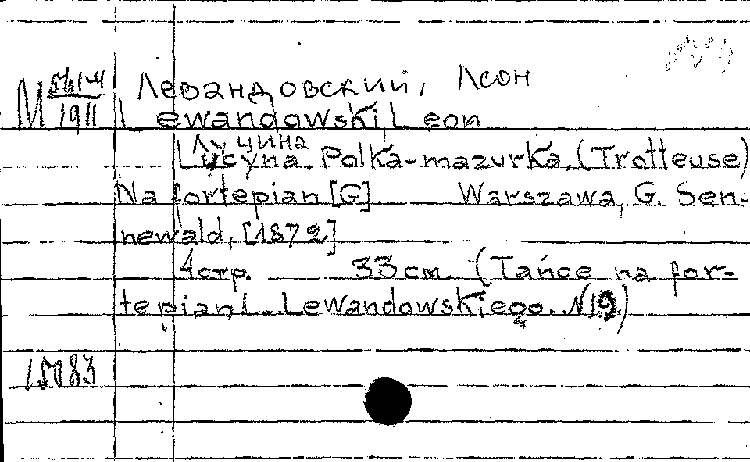 Левандовский, Леон
M 1911
Lewandowski Leon
Луцина
Lucyna. Polka-mazurka. (Trotteuse)
Na fortepian [G] Warszawa, G. Sen-
newald, [1872]
4 стр. 33 cm. (Tańce na for-
tepian L. Lewandowskiego. N 19)